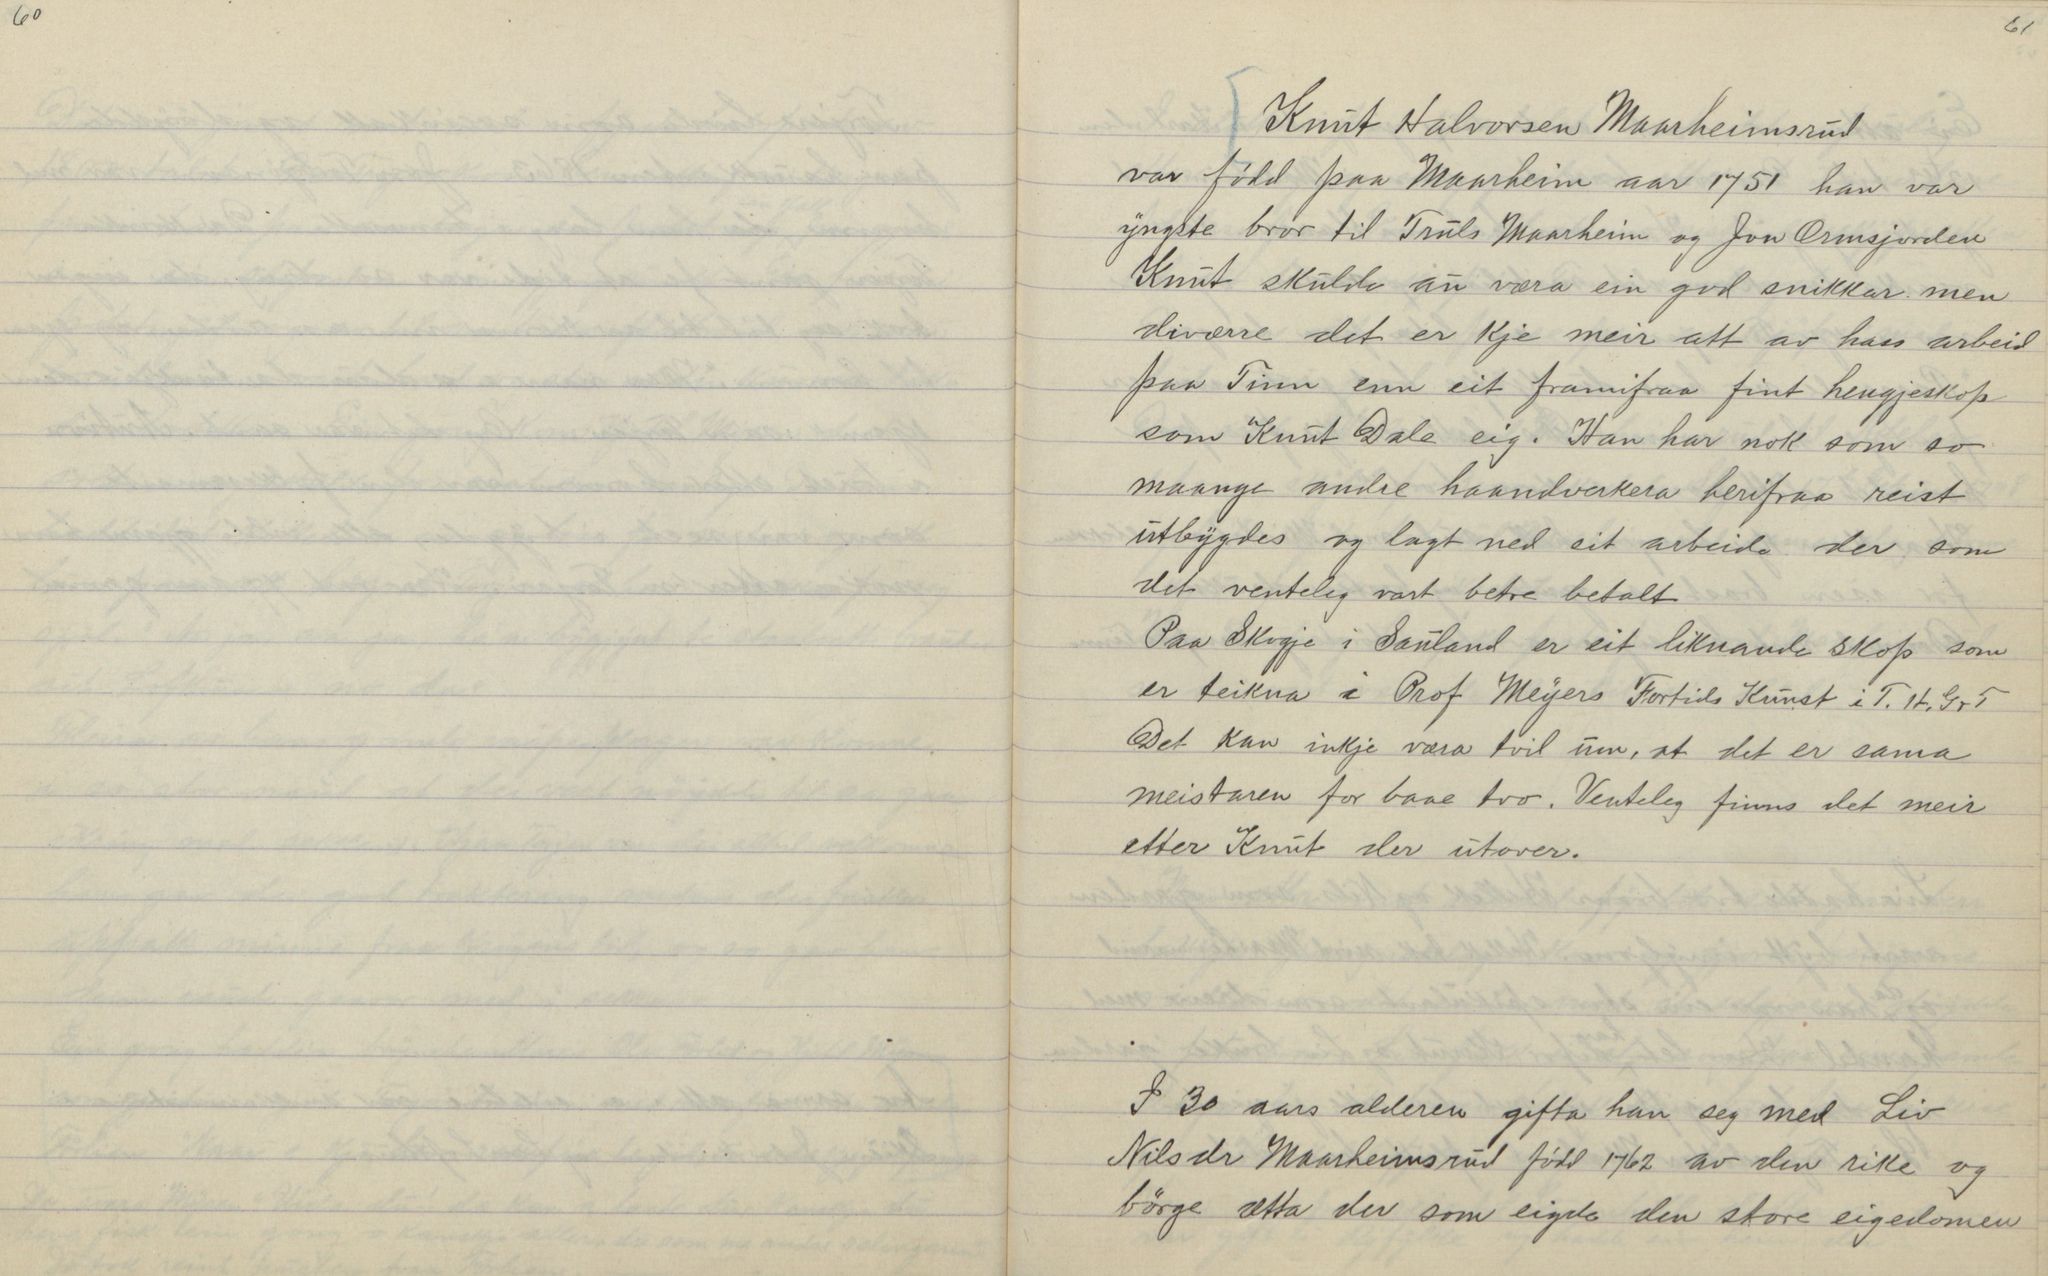 60
61
Knut Halvorsen Maarheimsrud
var född paa Maarheim aar 1751 han var
yngste bror til Truls Maarheim og Jon Ormsjorden
Knut skulde au væra ein god snikkar men
diværre det er kje meir att av hass arbeid
paa Tinn enn eit framifraa fint hengjeskop
som Knut Dale eig. Han har nok som so
maange andre haandverkera herifraa reist
utbygdes og lagt ned sit arbeide der som
det venteleg vart betre betalt
Paa Skogje i Sauland er eit liknande skop som
er teikna i Prof Meyers Fortids Kunst i T. H. Gr T
Det kan inkje væra tvil um, at det er sama
meistaren for baae tvo. Venteleg finns det meir
etter Knut der utover.
I 30 aars alderen gifta han seg med Liv
Nilsdr Maarheimsrud född 1762 av den rike og
börge ætta der som eigde den store eigedomen